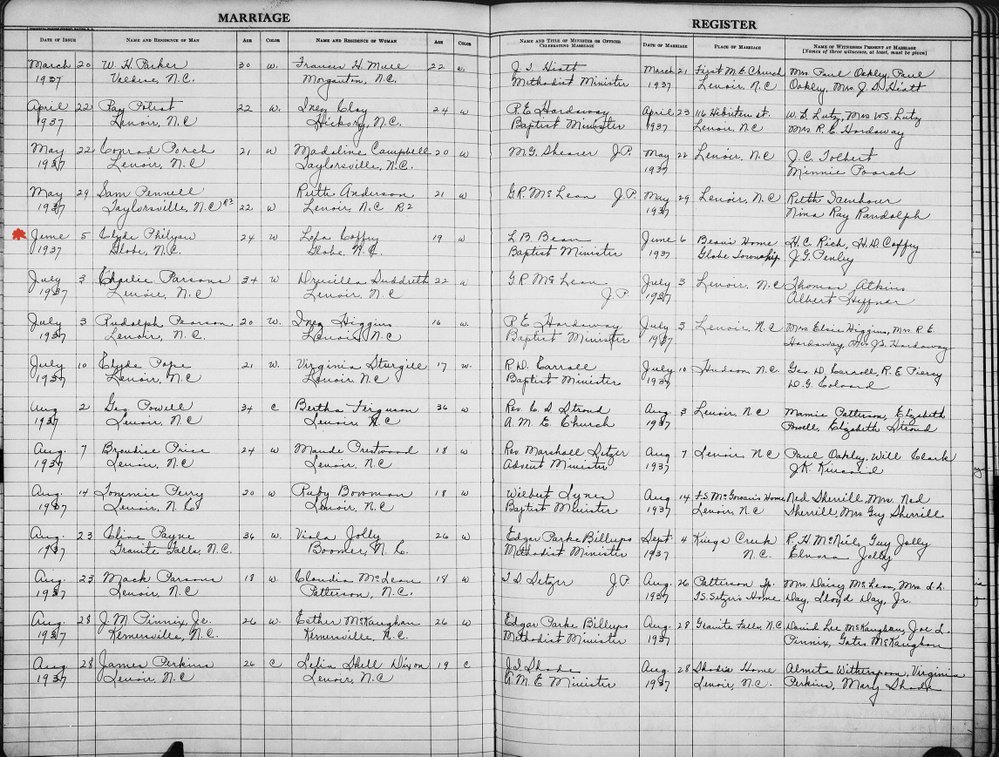 MARRIAGE REGISTER
DATE OF ISSUE NAME AND RESIDENCE OF MAN AGE COLOR NAME AND RESIDENCE OF WOMAN AGE COLOR NAME AND TITLE OF MINISTER OR OFFICER CELEBRATING MARRIAGE DATE OF MARRIAGE PLACE OF MARRIAGE NAME OF WITNESSES PRESENT AT MARRIAGE (Names of three witnesses, at least, must be given)
March 20 W. H. Parker 30 W. Frances H. Muse 22 w. J. I. Hiatt March 21 First M.E. Church Mrs Paul Oakley, Paul
1937 Valdese, N.C. Morganton, N.C. Methodist Minister 1937 Lenoir, N.C. Oakley, Mrs. J. I. Hiatt
April 22 Ray Poust 22 W. Inez Clay 24 w P.E. Hardaway April 23 116 st. W. L. Lutz, Mrs W.S. Lutz
1937 Lenoir, N.C Hickory, N.C. Baptist Minister 1937 Lenoir N.C Mrs R.E. Hardaway
May 22 Conrad Porch 21 W Madeline Campbell 20 w M.G. Shearer J.P. May 22 Lenoir, N.C J.C. Tolbert
1937 Lenoir, N.C Taylorsville, N.C. 1937 Minnie Poarch
May 29 Sam Pennell Ruth Anderson 21 w G.R. McLean J.P. May 29 Lenoir, N.C Ruth Isenhour
1937 Taylorsville, N.C R3 22 W Lenoir, N.C R2 1937 Nina Ray Randolph
June 5 Clyde Philyaw 24 W Lofa Coffey 19 w L.B. Bean June 6 Bean's Home H.C. Rich, H.D. Coffey
1937 Globe, N.C. Globe, N.C. Baptist Minister 1937 Globe Township J.G. Penley
July 3 Charlie Parsons 34 W Drucilla Suddreth 22 w G.R. McLean July 3 Lenoir, N.C Thomas Atkins
1937 Lenoir, N.C Lenoir, N.C J.P. 1937 Albert Huffner
July 3 Rudolph Pearson 20 W. Inez Higgins 16 w. P.E. Hardaway July 3 Lenoir, N.C Mrs Elsie Higgins, Mrs R.E.
1937 Lenoir, N.C. Lenoir, N.C Baptist Minister 1937 Hardaway, Hardaway
July 10 Clyde Pope 21 W. Virginia Sturgill 17 w. R.D. Carroll July 10 Hudson N.C. Geo. D. Carroll, R.E. Piercy
1937 Lenoir, N.C Lenoir N.C Baptist Minister 1937 D.G. Colvard
Aug 2 Guy Powell 34 C Bertha Ferguson 36 w Rev. C. D. Stroud Aug 3 Lenoir, N.C Mamie Patterson, Elizabeth
1937 Lenoir, N.C Lenoir N.C A.M.E. Church 1937 Powell, Elizabeth Stroud
Aug. 7 Price 24 W Maude Prestwood 18 w Rev. Marshall Setzer Aug 7 Lenoir, N.C Paul Oakley, Will Clark
1937 Lenoir, N.C Lenoir, N.C Advent Minister 1937 J.K. Kincaid
Aug. 14 Tommie Perry 20 W Ruby Bowman 18 w Wilburt Lynes Aug 14 F.S. McGowan's Home Ned Sherrill, Mrs. Ned
1937 Lenoir, N.C Lenoir, N.C Baptist Minister 1937 Lenoir, N.C Sherrill, Mrs Guy Sherrill
Aug. 23 Cline Payne 36 W. Viola Jolly 26 w Edgar Parks Billups Sept 4 Kings Creek R.H. McNeil, Guy Jolly
1937 Granite Falls, N.C. Boomer, N.C. Methodist Minister 1937 N.C. Elnora Jolly
Aug. 23 Mack Parsons 18 W Claudia McLean 18 w T.D. Setzer J.P. Aug. 26 Patterson Tp. Mrs. Daisy McLean, Mrs
1937 Lenoir, N.C Patterson, N.C. 1937 T.S. Setzer's Home Day, Lloyd Day, Jr.
Aug. 28 J.M. Pinnix, Jr. 26 W. Esther McKaughan 26 W Edgar Parks Billups Aug. 28 Granite Falls, N.C David Lee McKaughan, Joe L.
1937 Kernersville, N.C. Kernersville, N.C. Methodist Minister 1937 Pinnix, Gates McKaughan
Aug 28 James Perkins 26 C Lelia Shell Dixon 19 C J.I. Shade Aug. 28 Shade's Home Almeta Witherspoon, Virginia
1937 Lenoir, N.C Lenoir, N.C A.M.E Minister 1937 Lenoir, N.C. Perkins, Mary Shade